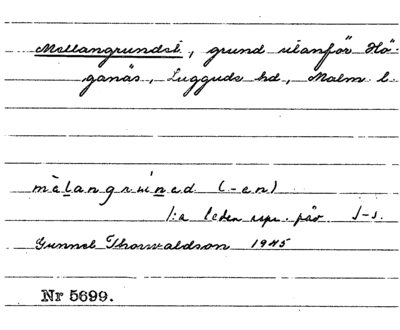 Mellangrundet, grund utanför Hö-
ganäs, Luggude hd, Malm. l.
mèlangruìned (-en)
1:a leden upr. på J-s.
Gunnel Thorwaldson 1945
Nr 5699.